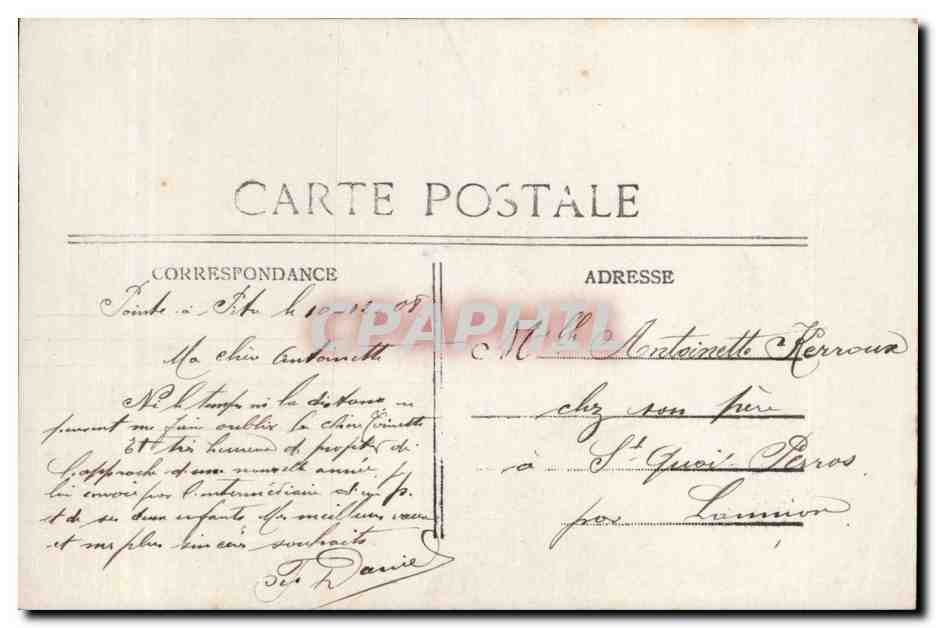 CARTE POSTALE
CORRESPONDANCE
Pointe à Pitre le 10-12-08
Ma chèr Antoinette
Ni le temps ni la distance ne
peuvent me faire oublier la chère Toinette
Et très heureux de profiter de
l'approche d'une nouvelle année,
lui envoie par l'intermédiaire d'un p.
et de ses deux enfants Mes meilleurs vœux
et mes plus sincères souhaits
Daniel
ADRESSE
Melle Antoinette Kerroux
chez son père
à St Quai-Perros
par Lannion
CPAPHIL